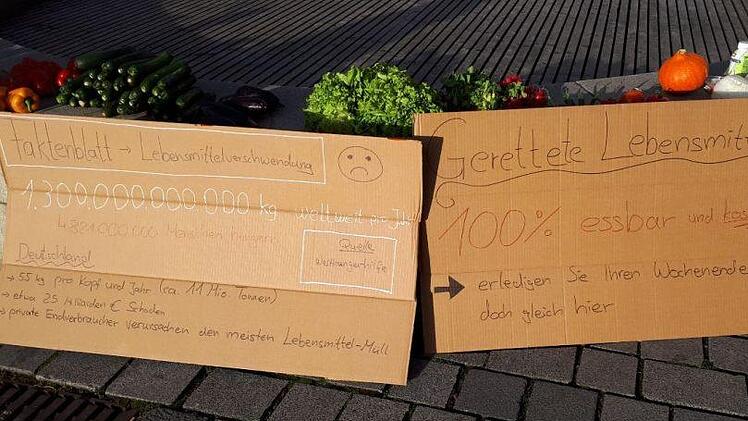 Faktenblatt → Lebensmittelverschwendung
1.300.000.000.000 kg weltweit pro Jahr
Menschen hungern
Quelle
Welthungerhilfe
Deutschland
→ 55 kg pro Kopf und Jahr (ca. 11 Mio. Tonnen)
→ etwa 25 Milliarden € Schaden
→ private Endverbraucher verursachen den meisten Lebensmittel-Müll
Gerettete Lebensmitt
100% essbar und kos
→ erledigen Sie Ihren Wochenende
doch gleich hier